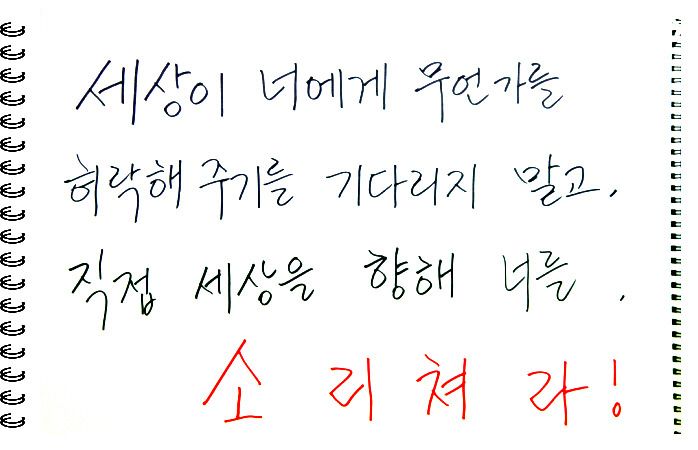 세상이 너에게 무언가를
허락해 주기를 기다리지 말고,
직접 세상을 향해 너를,
소리쳐라!